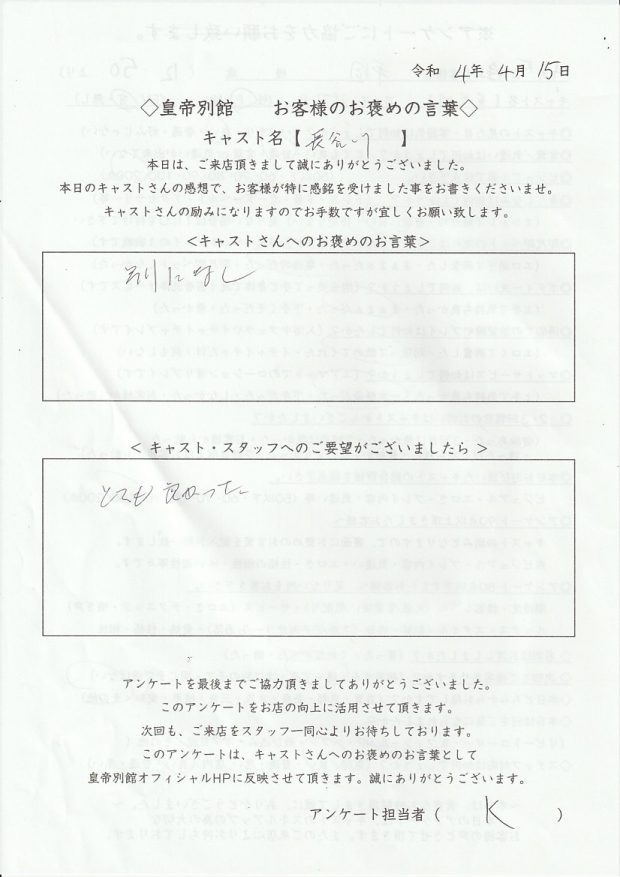 令和 4年 4月 15日
◇皇帝別館 お客様のお褒めの言葉◇
キャスト名【 長谷川 】
本日は、ご来店頂きまして誠にありがとうございました。
本日のキャストさんの感想で、お客様が特に感銘を受けました事をお書きくださいませ。
キャストさんの励みになりますのでお手数ですが宜しくお願い致します。
<キャストさんへのお褒めのお言葉>
別になし
< キャスト・スタッフへのご要望がございましたら >
とても良かった
アンケートを最後までご協力頂きましてありがとうございました。
このアンケートをお店の向上に活用させて頂きます。
次回も、ご来店をスタッフ一同心よりお待ちしております。
このアンケートは、キャストさんへのお褒めのお言葉として
皇帝別館オフィシャルHPに反映させて頂きます。誠にありがとうございます。
アンケート担当者 ( K )